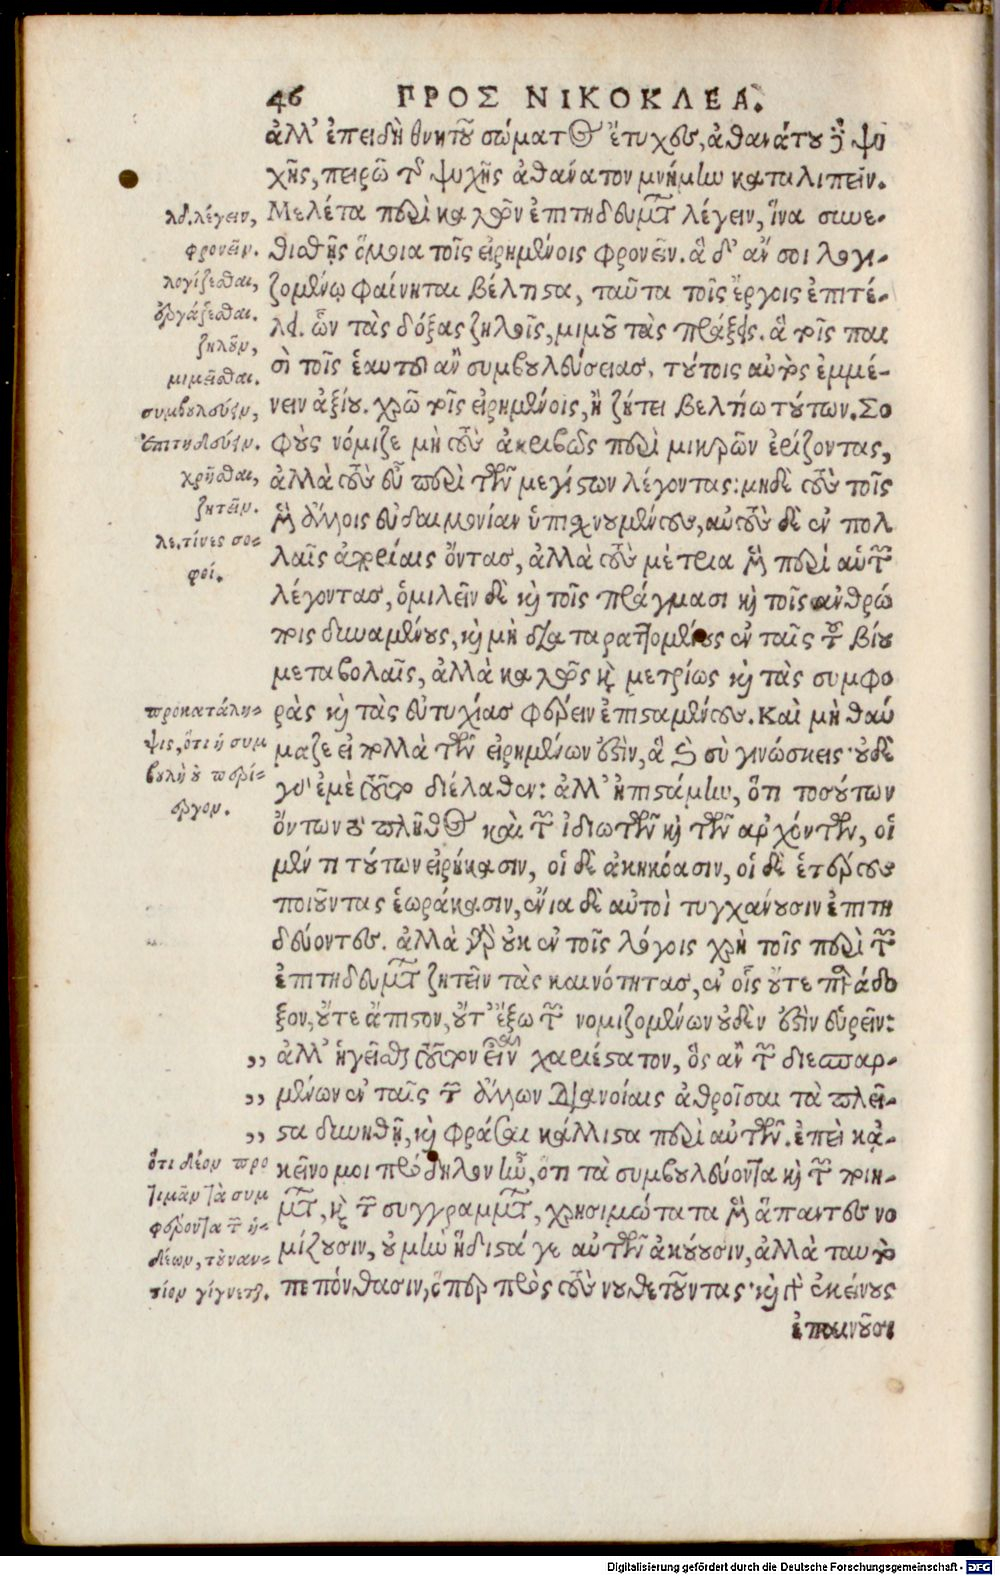 46 ΠΡΟΣ ΝΙΚΟΚΛΕΑ.
ἀλλ' ἐπειδὴ θνητοῦ σώματος ἔτυχες, ἀθανάτου δὲ ψυ
χῆς, πειρῶ τῆς ψυχῆς ἀθάνατον μνήμην καταλιπεῖν.
Μελέτα περὶ καλῶν ἐπιτηδευμάτων λέγειν, ἵνα συνε-
θισθῇς ὅμοια τοῖς εἰρημένοις φρονεῖν. ἃ δ' ἄν σοι λογι-
ζομένῳ φαίνηται βέλτιστα, ταῦτα τοῖς ἔργοις ἐπιτέ-
λει. ὧν τὰς δόξας ζηλοῖς, μιμοῦ τὰς πράξεις. ἃ τοῖς παι
σὶ τοῖς ἑαυτοῦ ἂν συμβουλεύσειας, τούτοις αὐτὸς ἐμμέ-
νειν ἀξίου. χρῶ τοῖς εἰρημένοις, ἢ ζήτει βελτίω τούτων. Σο
φοὺς νόμιζε μὴ τοὺς ἀκριβῶς περὶ μικρῶν ἐρίζοντας,
ἀλλὰ τοὺς εὖ περὶ τῶν μεγίστων λέγοντας: μηδὲ τοὺς τοῖς
μὲν ἄλλοις εὐδαιμονίαν ὑπισχνουμένους, αὐτοὺς δὲ ἐν πολ
λαῖς ἀπορίαις ὄντας, ἀλλὰ τοὺς μέτρια μὲν περὶ αὑτῶν
λέγοντας, ὁμιλεῖν δὲ καὶ τοῖς πράγμασι καὶ τοῖς ἀνθρώ
ποις δυναμένους, καὶ μὴ διαταραττομένους ἐν ταῖς τοῦ βίου
μεταβολαῖς, ἀλλὰ καλῶς καὶ μετρίως καὶ τὰς συμφο
ρὰς καὶ τὰς εὐτυχίας φέρειν ἐπισταμένους. Καὶ μὴ θαύ
μαζε εἰ πολλὰ τῶν εἰρημένων ἐστὶν, ἃ καὶ σὺ γινώσκεις· οὐδὲ
γὰρ ἐμὲ τοῦτο διέλαθεν: ἀλλ' ἠπιστάμην, ὅτι τοσούτων
ὄντων τὸ πλῆθος καὶ τῶν ἰδιωτῶν καὶ τῶν ἀρχόντων, οἱ
μέν τι τούτων εἰρήκασιν, οἱ δὲ ἀκηκόασιν, οἱ δὲ ἑτέρους
ποιοῦντας ἑωράκασιν, ἔνια δὲ αὐτοὶ τυγχάνουσιν ἐπιτη
δεύοντες. ἀλλὰ γὰρ οὐκ ἐν τοῖς λόγοις χρὴ τοῖς περὶ τῶν
ἐπιτηδευμάτων ζητεῖν τὰς καινότητας, ἐν οἷς οὔτε παράδο
ξον, οὔτε ἄπιστον, οὔτ' ἔξω τῶν νομιζομένων οὐδὲν ἐστὶν εὑρεῖν:
,, ἀλλ' ἡγεῖσθαι τοῦτον εἶναι χαριέστατον, ὃς ἂν τῶν διεσπαρ-
,, μένων ἐν ταῖς τῶν ἄλλων διανοίαις ἀθροῖσαι τὰ πλεῖ-
,, στα δυνηθῇ, καὶ φράσαι κάλλιστα περὶ αὐτῶν. ἐπεὶ κἀ-
κεῖνο μοι πρόδηλον ἦν, ὅτι τὰ συμβουλεύοντα καὶ τῶν ποιη-
μάτων, καὶ τῶν συγγραμμάτων, χρησιμώτατα μὲν ἅπαντες νο
μίζουσιν, οὐ μὴν ἥδιστά γε αὐτῶν ἀκούουσιν, ἀλλὰ ταυτὸ
πεπόνθασιν, ὅπερ πρὸς τοὺς νουθετοῦντας· καὶ γὰρ ἐκείνους
ἐπαινοῦσι
λδ. λέγειν,
φρονεῖν.
λογίζεσθαι,
ἐργάζεσθαι.
ζηλοῦν,
μιμεῖσθαι.
συμβουλεύειν,
ἐπιτηδεύειν.
χρῆσθαι,
ζητεῖν.
λε. τίνες σο-
φοί.
προκατάλη-
ψις, ὅτι ἡ συμ
βουλὴ οὐ περί-
εργον.
ὅτι δέον προ
τιμᾶν τὰ συμ
φέροντα τῶν ἡ-
δέων, τοὐναν-
τίον γίγνεται.
Digitalisierung gefördert durch die Deutsche Forschungsgemeinschaft - DFG